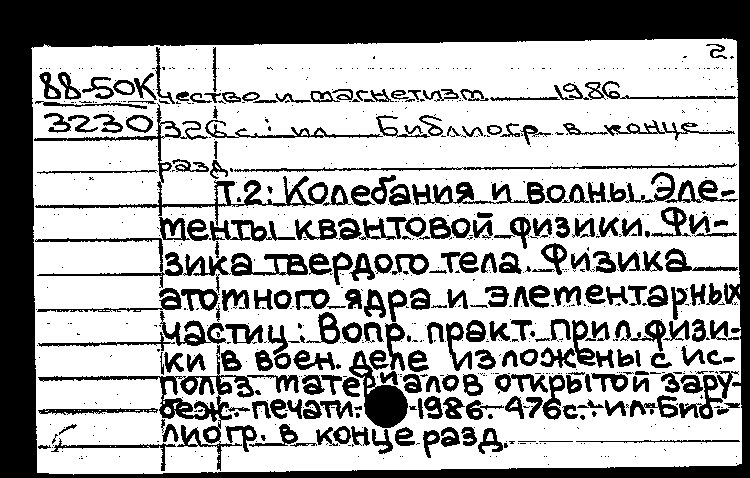 2.
88-50К чество и магнетизм 1986.
3230 326 с.: ил Библиогр в конце
разд
Т.2: Колебания и волны. Эле-
менты квантовой физики. Фи-
зика твердого тела. Физика
атотного ядра и элементарных
частиц: Вопр. практ. прил. физи-
ки в воен. деле изложены с ис-
польз. материалов открытой зару-
беж. печати. - 1986. 476с.: ил. Биб-
лиогр. в конце разд.